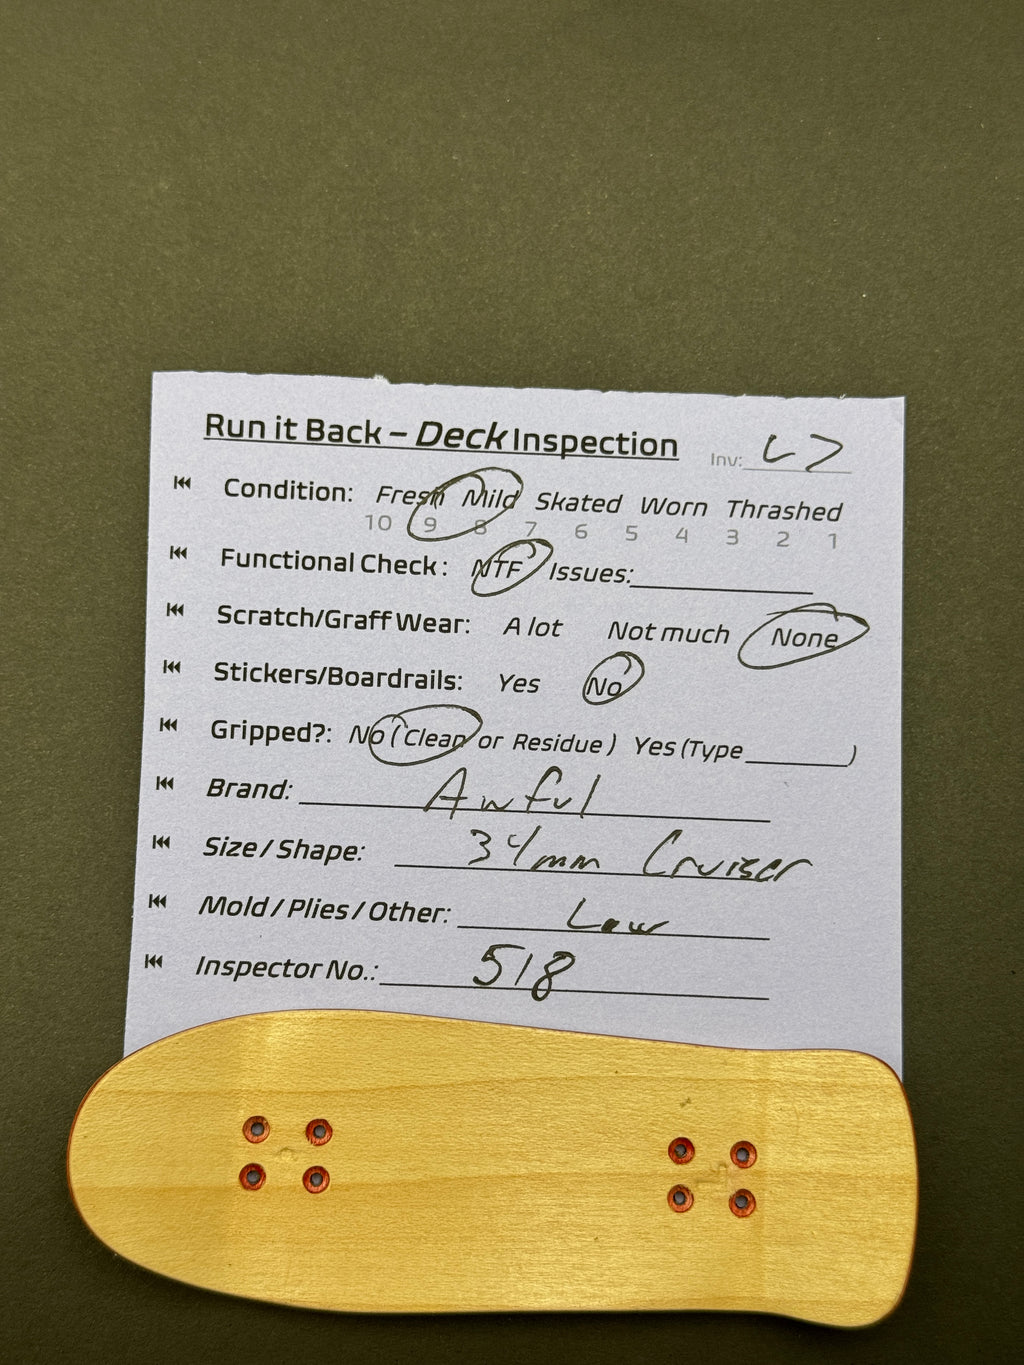 Run it Back – Deck Inspection Inv:
Condition: Fresh Mild Skated Worn Thrashed
10 9 8 7 6 5 4 3 2 1
Functional Check: NTF Issues:
Scratch/Graff Wear: A lot Not much None
Stickers/Boardrails: Yes No
Gripped?: No (Clean or Residue) Yes (Type )
Brand: Awful
Size / Shape: 34mm Cruiser
Mold / Plies / Other: Low
Inspector No.: 518